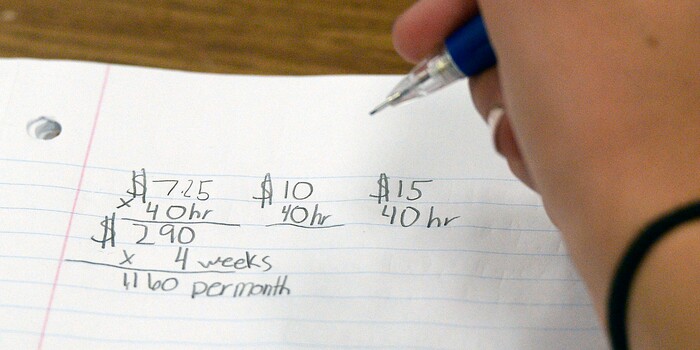 $7.25 $10 $15
x 40hr 40hr 40hr
$290
x 4 weeks
1160 per month